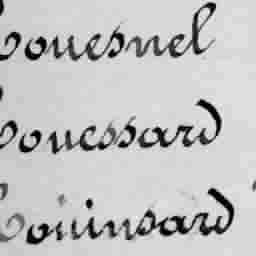 Couesnel
Couessard
Couinsard